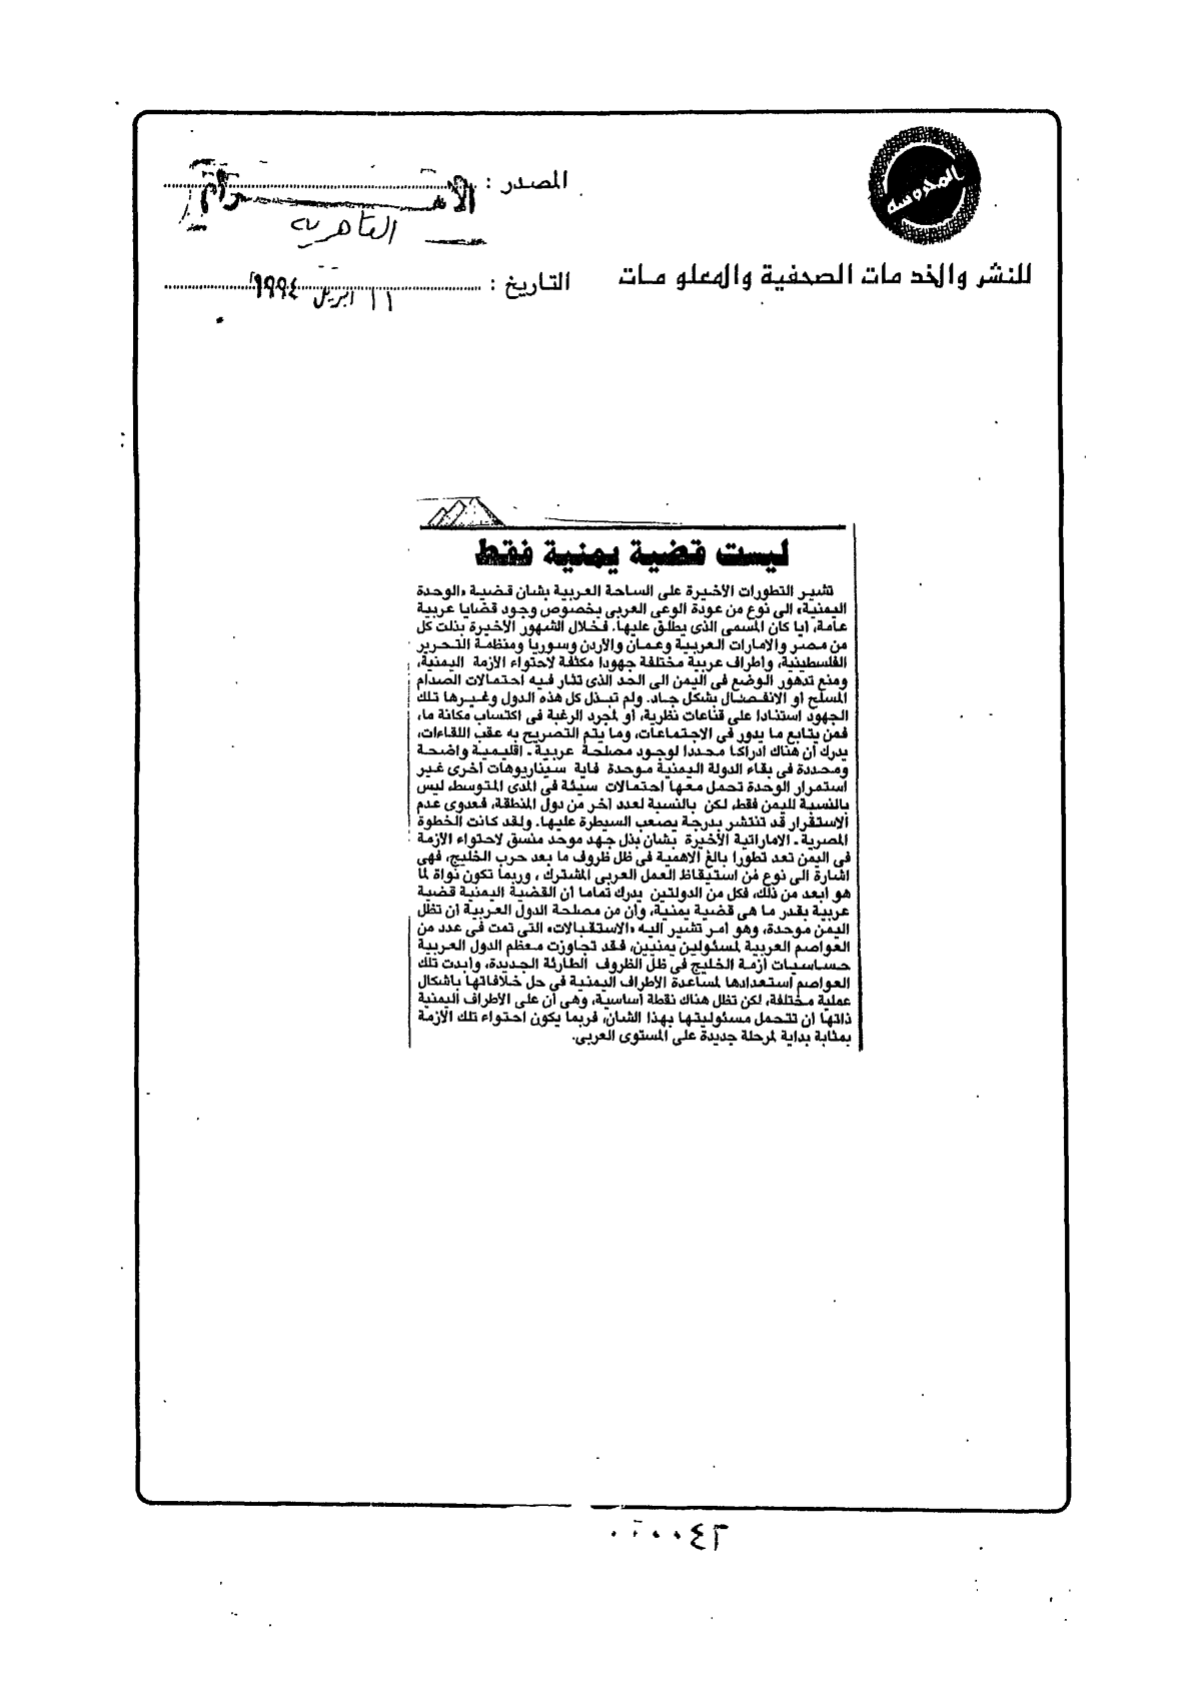 المحروسة
المصدر :
الأهرام
القاهرية
للنشر والخدمات الصحفية والمعلومات
التاريخ :
١١ ابريل ١٩٩٤
ليست قضية يمنية فقط
تشير التطورات الأخيرة على الساحة العربية بشان قضية «الوحدة
اليمنية» الى نوع من عودة الوعى العربى بخصوص وجود قضايا عربية
عامة، أيا كان المسمى الذى يطلق عليها. فخلال الشهور الأخيرة بذلت كل
من مصر والامارات العربية وعمان والأردن وسوريا ومنظمة التحرير
الفلسطينية، واطراف عربية مختلفة جهودا مكثفة لاحتواء الأزمة اليمنية،
ومنع تدهور الوضع فى اليمن الى الحد الذى تثار فيه احتمالات الصدام
المسلح أو الانفصال بشكل جاد. ولم تبذل كل هذه الدول وغيرها تلك
الجهود استنادا على قناعات نظرية، أو لمجرد الرغبة فى اكتساب مكانة ما،
فمن يتابع ما يدور فى الاجتماعات، وما يتم التصريح به عقب اللقاءات،
يدرك أن هناك ادراكا محددا لوجود مصلحة عربية ـ اقليمية واضحة
ومحددة فى بقاء الدولة اليمنية موحدة فاية سيناريوهات أخرى غير
استمرار الوحدة تحمل معها احتمالات سيئة فى المدى المتوسط، ليس
بالنسبة لليمن فقط، لكن بالنسبة لعدد آخر من دول المنطقة، فعدوى عدم
الاستقرار قد تنتشر بدرجة يصعب السيطرة عليها. ولقد كانت الخطوة
المصرية ـ الاماراتية الأخيرة بشان بذل جهد موحد منسق لاحتواء الأزمة
فى اليمن تعد تطورا بالغ الاهمية فى ظل ظروف ما بعد حرب الخليج، فهى
اشارة الى نوع من استيقاظ العمل العربى المشترك ، وربما تكون نواة لما
هو أبعد من ذلك، فكل من الدولتين يدرك تماما أن القضية اليمنية قضية
عربية بقدر ما هى قضية يمنية، وأن من مصلحة الدول العربية أن تظل
اليمن موحدة، وهو أمر تشير اليه «الاستقبالات» التى تمت فى عدد من
العواصم العربية لمسئولين يمنيين، فقد تجاوزت معظم الدول العربية
حساسيات أزمة الخليج فى ظل الظروف الطارئة الجديدة، وأبدت تلك
العواصم استعدادها لمساعدة الأطراف اليمنية فى حل خلافاتها باشكال
عملية مختلفة، لكن تظل هناك نقطة أساسية، وهى أن على الأطراف اليمنية
ذاتها أن تتحمل مسئوليتها بهذا الشان، فربما يكون احتواء تلك الأزمة
بمثابة بداية لمرحلة جديدة على المستوى العربى.